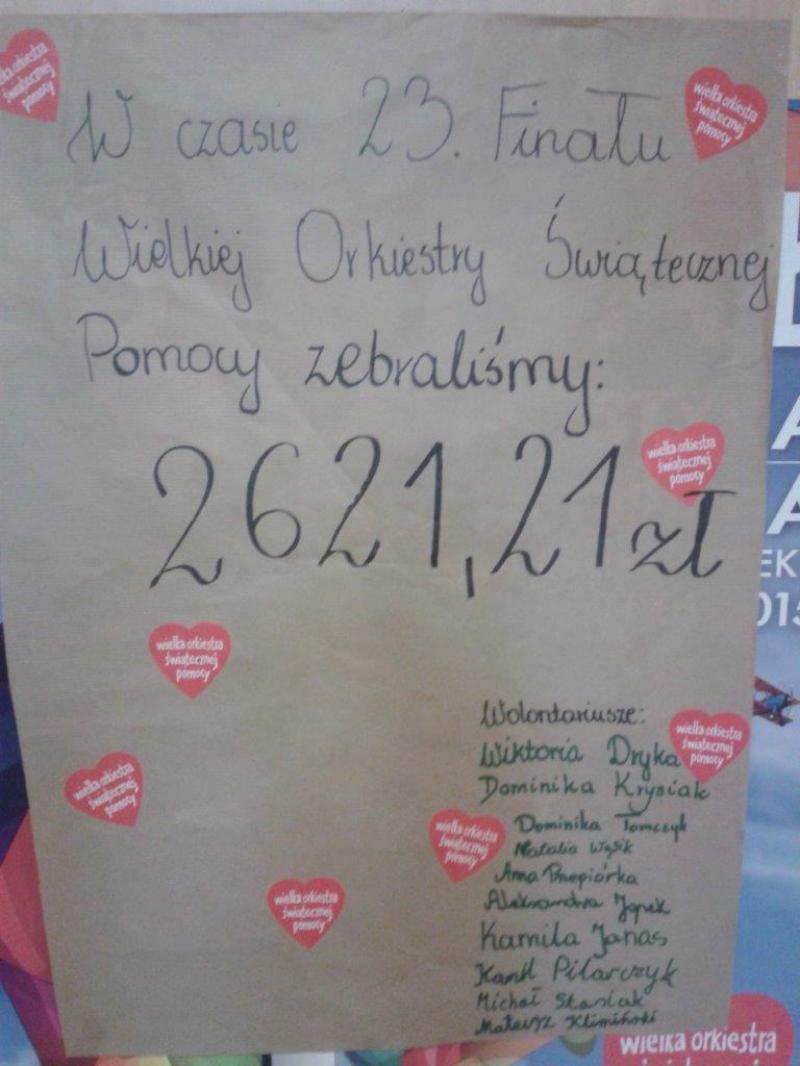 W czasie 23. Finału
Wielkiej Orkiestry Świątecznej
Pomocy zebraliśmy:
2621,21 zł
Wolontariusze:
Wiktoria Dryka
Dominika Krysiak
Dominika Tomczyk
Natalia Wąsik
Anna Przepiórka
Aleksandra Janek
Kamila Janas
Kamil Pilarczyk
Michał Stasiak
Mateusz Klimiński
wielka orkiestra
świątecznej
pomocy
wielka orkiestra
świątecznej
pomocy
wielka orkiestra
świątecznej
pomocy
wielka orkiestra
świątecznej
pomocy
wielka orkiestra
świątecznej
pomocy
wielka orkiestra
świątecznej
pomocy
wielka orkiestra
świątecznej
pomocy
wielka orkiestra
świątecznej
pomocy
wielka orkiestra